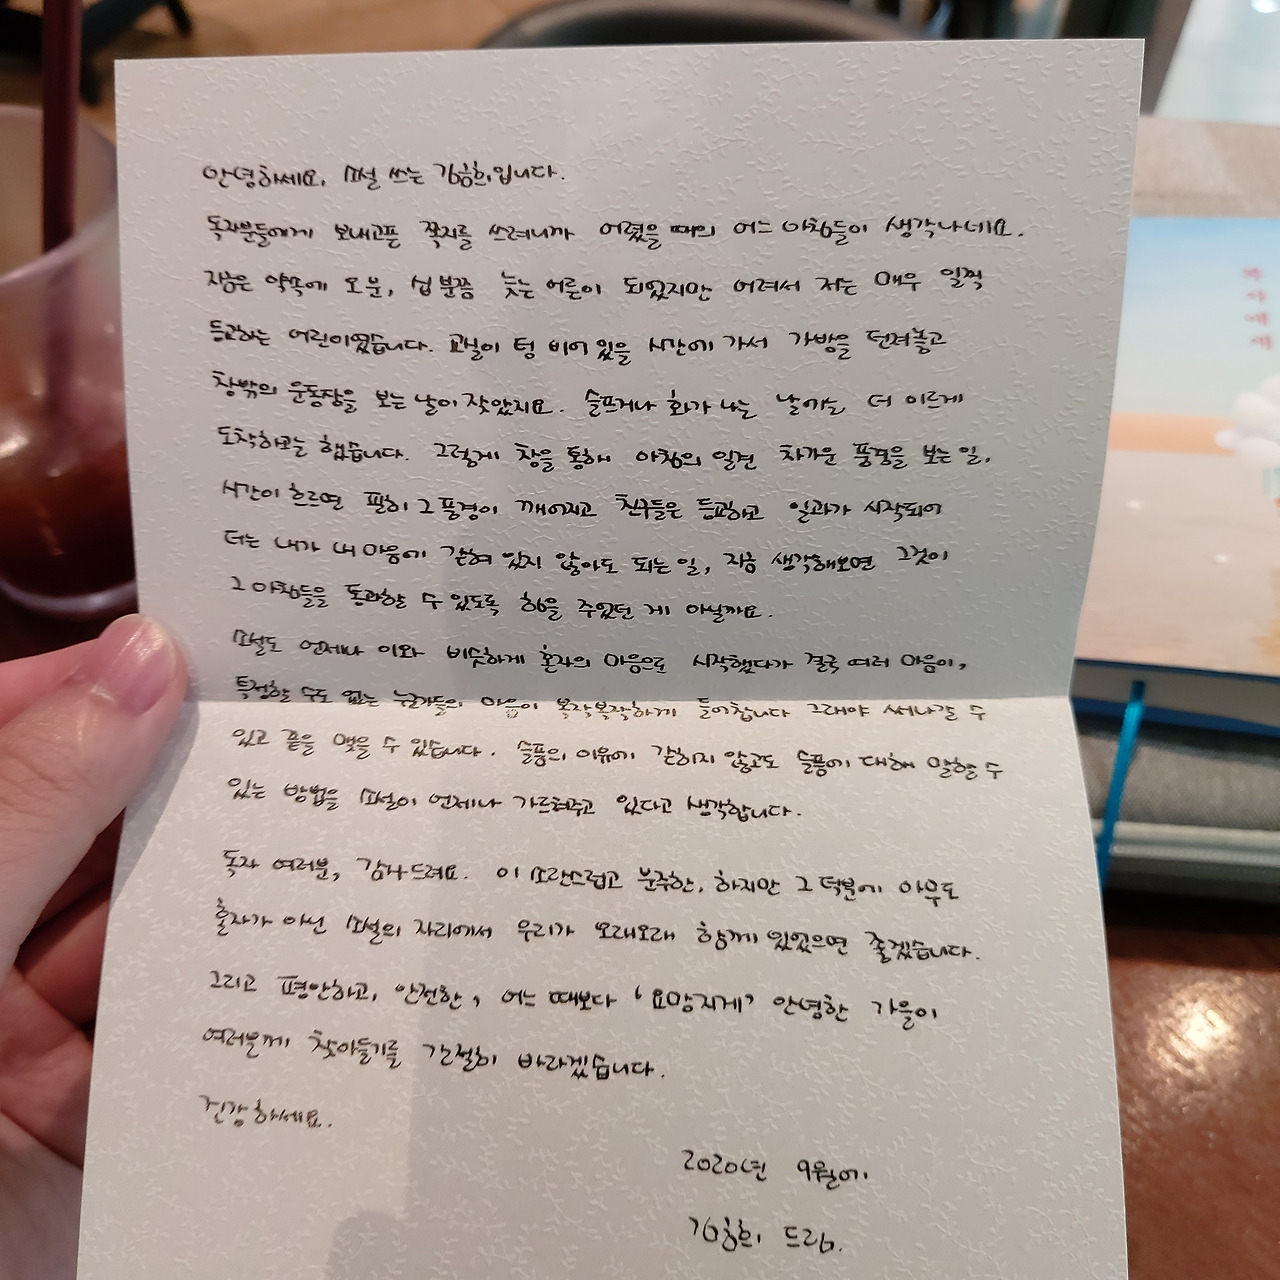 안녕하세요, 소설 쓰는 김금희입니다.
독자분들에게 보내고픈 쪽지를 쓰려니까 어렸을 때의 어느 아침들이 생각나네요.
지금은 약속에 오 분, 십 분쯤 늦는 어른이 되었지만 어려서 저는 매우 일찍
등교하는 어린이였습니다. 교실이 텅 비어 있을 시간에 가서 가방을 던져놓고
창밖의 운동장을 보는 날이 잦았지요. 슬프거나 화가 나는 날에는 더 이르게
도착하고는 했습니다. 그렇게 창을 통해 아침의 일견 차가운 풍경을 보는 일,
시간이 흐르면 필히 그 풍경이 깨어지고 친구들은 등교하고 일과가 시작되어
더는 내가 내 마음에 갇혀 있지 않아도 되는 일, 지금 생각해보면 그것이
그 아침들을 통과할 수 있도록 힘을 주었던 게 아닐까요.
소설도 언제나 이와 비슷하게 혼자의 마음으로 시작했다가 결국 여러 마음이,
특정할 수도 없는 누군가들의 마음이 복작복작하게 들어찹니다 그래야 써나갈 수
있고 끝을 맺을 수 있습니다. 슬픔의 이유에 갇히지 않고도 슬픔에 대해 말할 수
있는 방법을 소설이 언제나 가르쳐주고 있다고 생각합니다.
독자 여러분, 감사드려요. 이 소란스럽고 분주한, 하지만 그 덕분에 아무도
혼자가 아닌 소설의 자리에서 우리가 오래오래 함께 있었으면 좋겠습니다.
그리고 평안하고, 안전한, 어느 때보다 '요망지게' 안녕한 가을이
여러분께 찾아들기를 간절히 바라겠습니다.
건강하세요.
2020년 9월에
김금희 드림.
복자에게